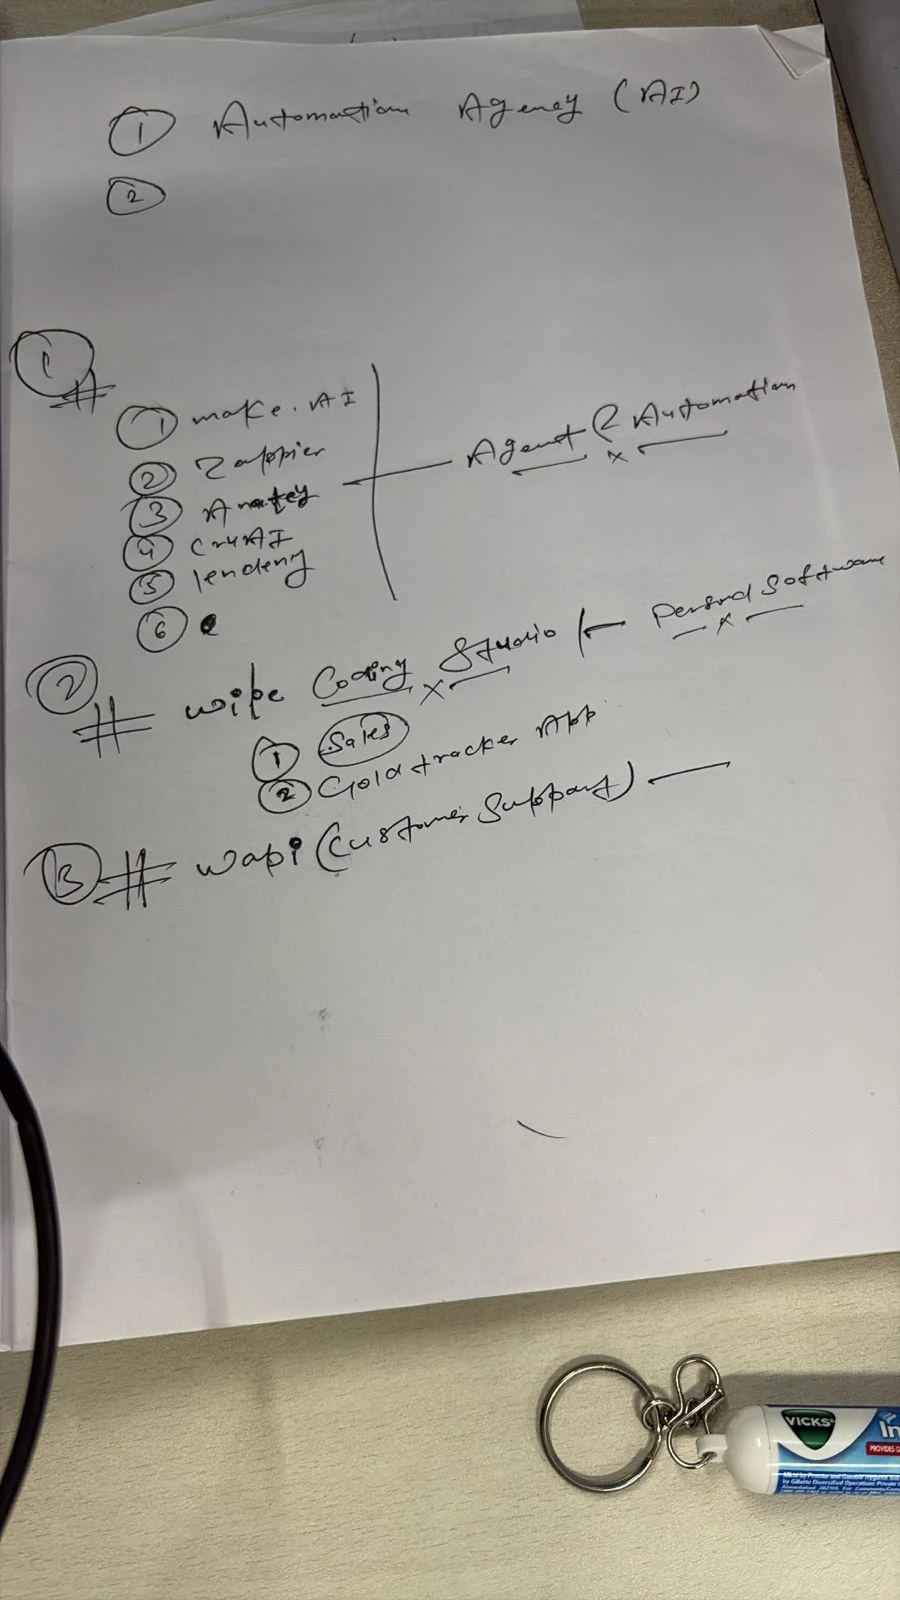 ① Automation Agency (AI)
②
①
#
① make.AI
② Zappier
③
④ CruAI
⑤
⑥
Agent & Automation
② # wipe Coding Studio
Software
① Sales
② Gold tracker App
③ # wapi (Customer Support)
VICKS
In